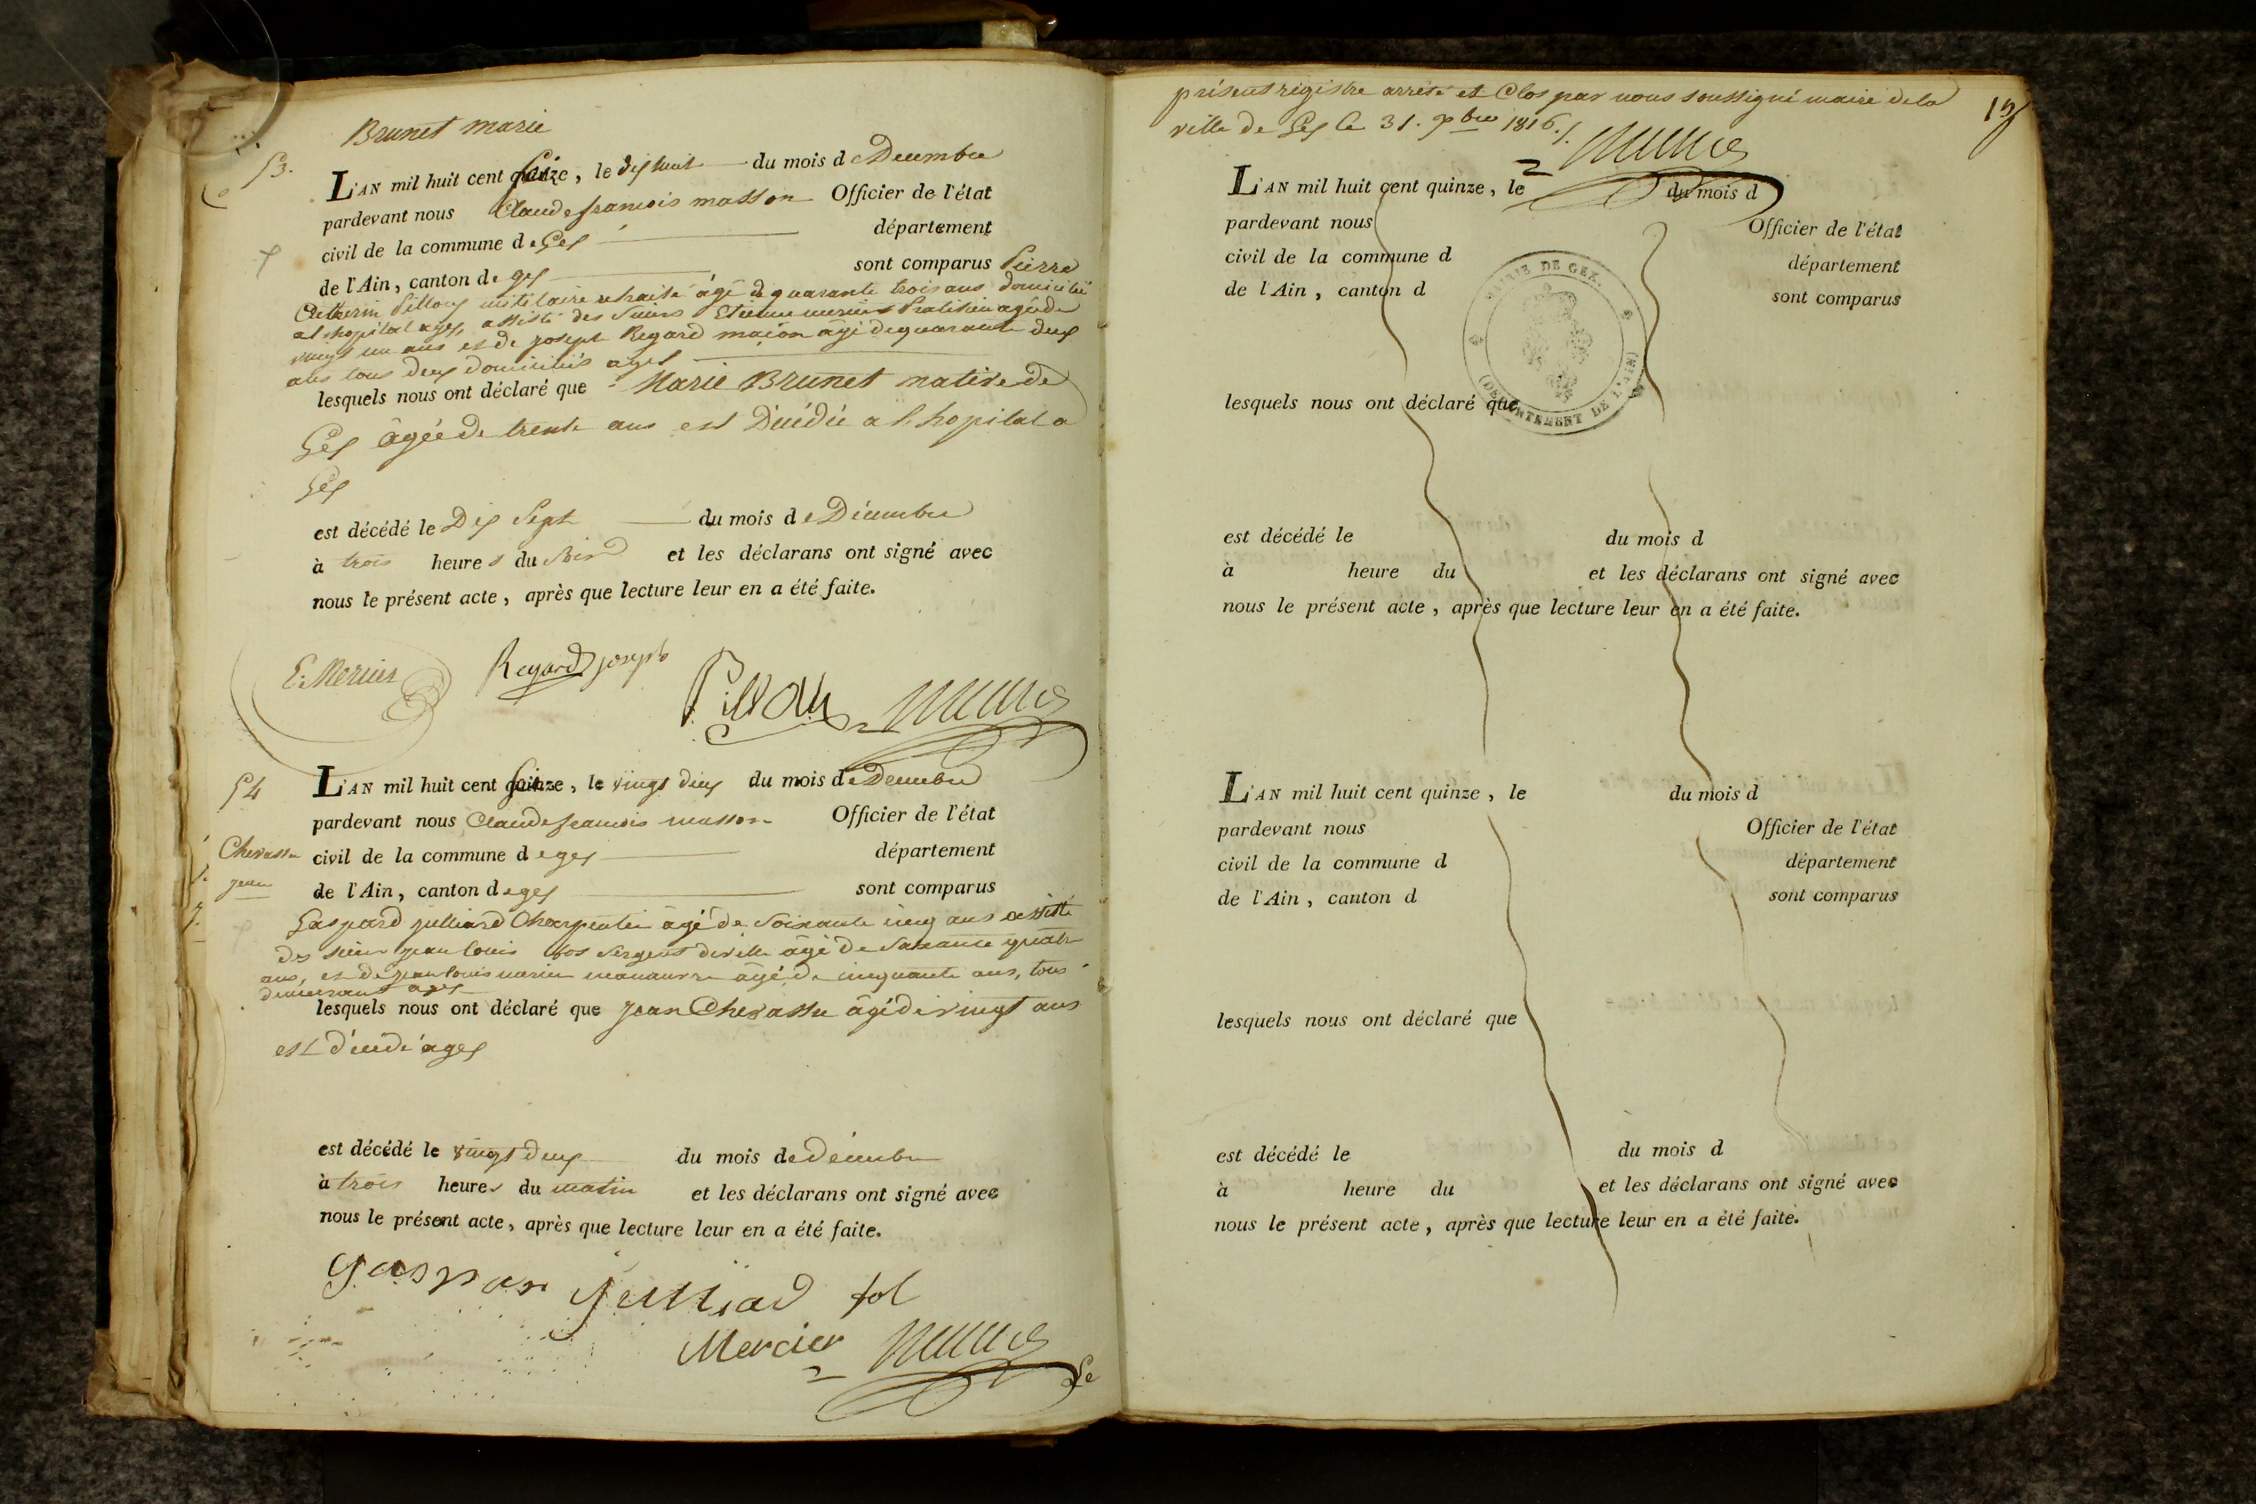 Brunet marie
53.
L'AN mil huit cent seize, le dix huit du mois de Decembre
pardevant nous Claude francois masson Officier de l'état
civil de la commune de Gex département
de l'Ain, canton de gex sont comparus Pierre
militaire retraité âgé de quarante trois ans domicilié
a l'hopital a gex, assisté des Sieurs Etienne mercier Praticien agé de
vingt un ans et de joseph Regard maçon âgé de quarante deux
ans tous deux domiciliés a gex
lesquels nous ont déclaré que Marie Brunet native de
Gex âgée de trente ans est Décédée a l'hopital a
Gex
est décédé le Dix Sept du mois de Décembre
à trois heures du Soir et les déclarans ont signé avec
nous le présent acte, après que lecture leur en a été faite.
E. Mercier Regard joseph
54
L'AN mil huit cent seize, le vingt deux du mois de Decembre
pardevant nous Claude francois masson Officier de l'état
Chevassu civil de la commune de gex département
jean de l'Ain, canton de gex sont comparus
Gaspard julliard Charpentier âgé de Soixante cinq ans assisté
des sieurs jean louis fol sergent de ville âgé de Soixante quatre
ans, et de jean louis mercier manœuvre âgé de cinquante ans, tous
demeurant a gex
lesquels nous ont déclaré que jean Chevassu âgé de vingt ans
est décédé a gex
est décédé le vingt deux du mois de décembre
à trois heures du matin et les déclarans ont signé avec
nous le présent acte, après que lecture leur en a été faite.
gaspar julliad fol
Mercier
Le
présent régistre arrêté et Clos par nous soussigné maire de la
ville de Gex le 31. Xbre 1816.
L'AN mil huit cent quinze, le du mois d
pardevant nous Officier de l'état
civil de la commune d département
de l'Ain, canton d sont comparus
MAIRIE DE GEX.
(DÉPARTEMENT DE L'AIN)
lesquels nous ont déclaré que
est décédé le du mois d
à heure du et les déclarans ont signé avec
nous le présent acte, après que lecture leur en a été faite.
L'AN mil huit cent quinze, le du mois d
pardevant nous Officier de l'état
civil de la commune d département
de l'Ain, canton d sont comparus
lesquels nous ont déclaré que
est décédé le du mois d
à heure du et les déclarans ont signé avec
nous le présent acte, après que lecture leur en a été faite.